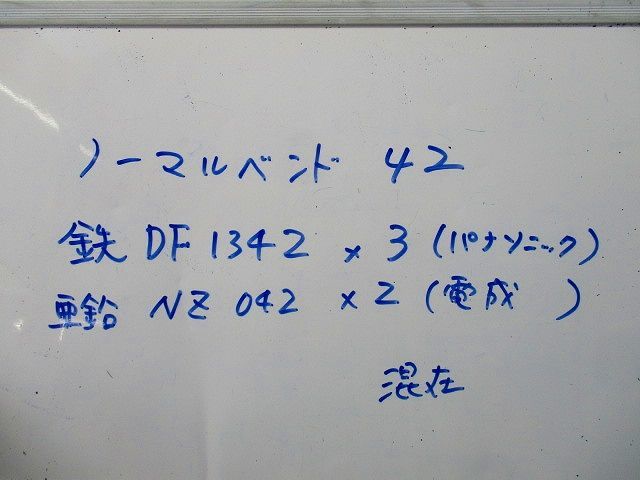 ノーマルベンド 42
鉄 DF 1342 × 3 (パナソニック)
亜鉛 NZ 042 × 2 (電成 )
混在